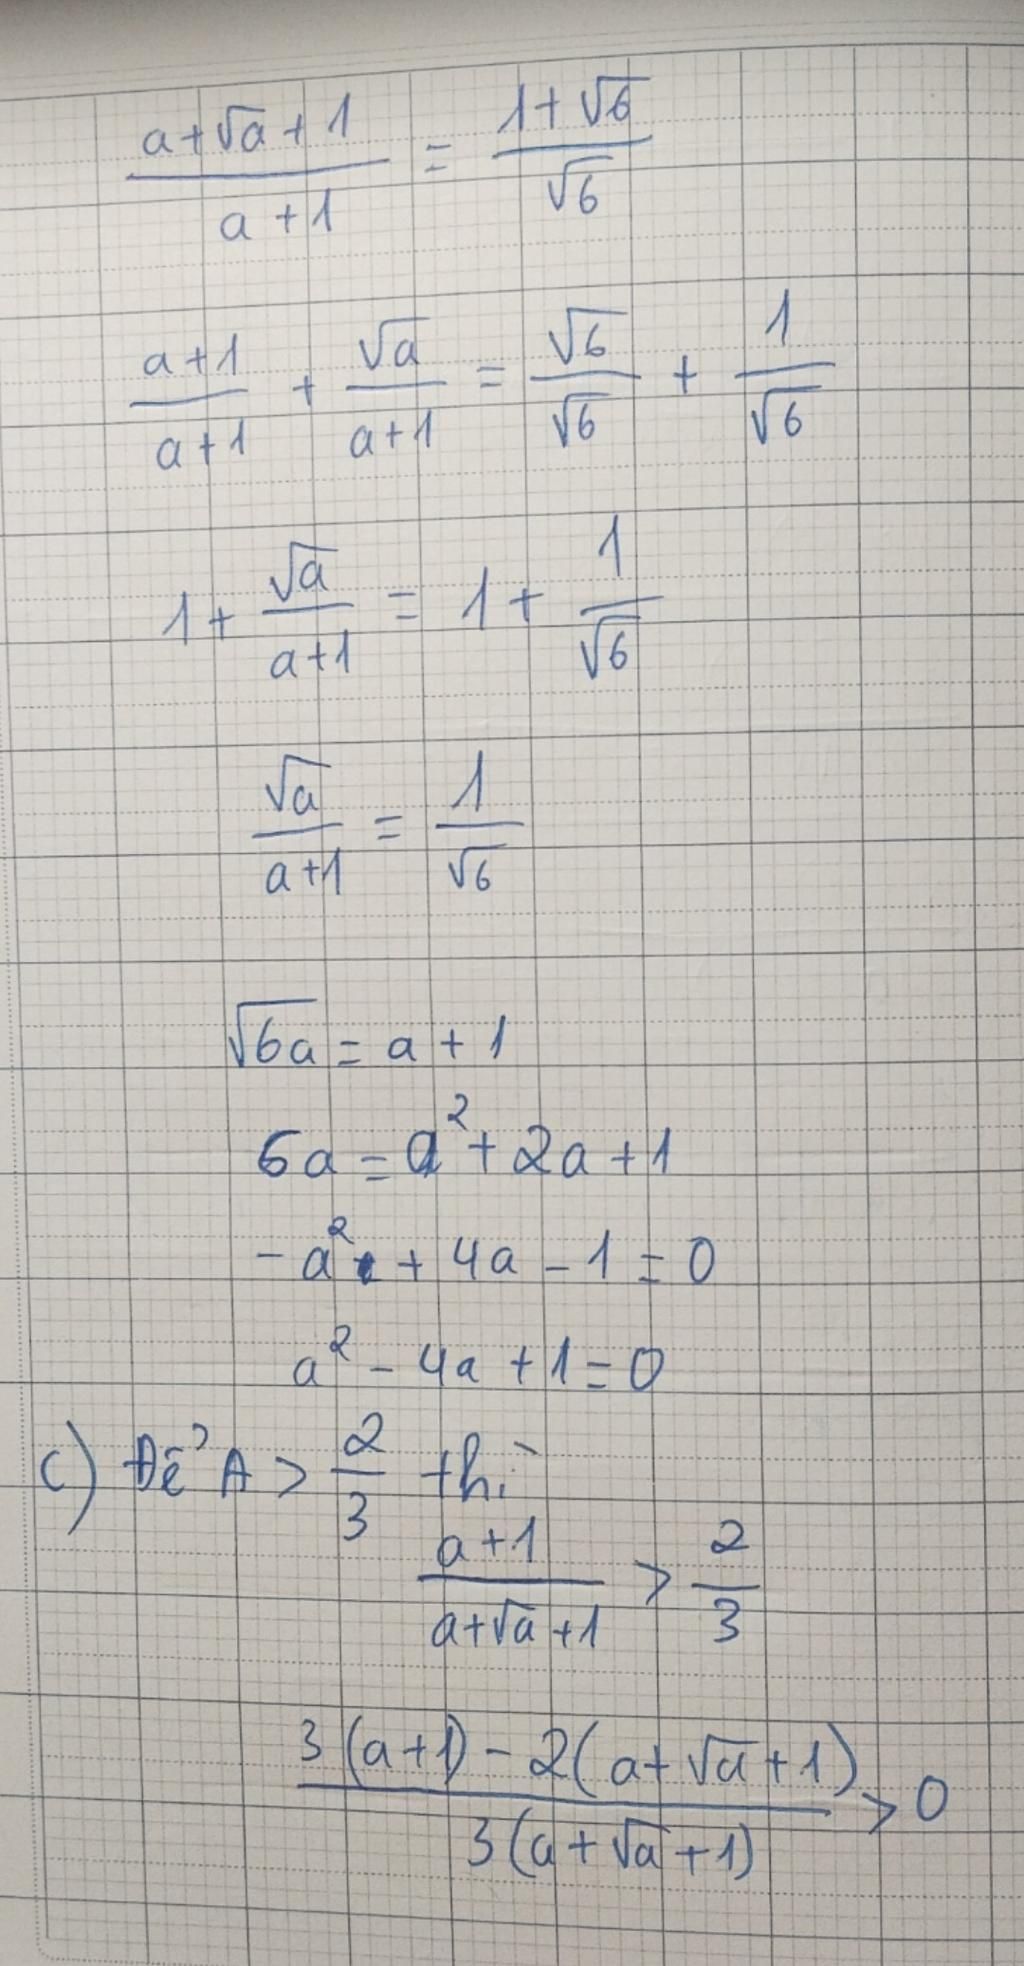 (a+√a+1)/(a+1) = (1+√6)/√6
(a+1)/(a+1) + √a/(a+1) = √6/√6 + 1/√6
1 + √a/(a+1) = 1 + 1/√6
√a/(a+1) = 1/√6
√(6a) = a + 1
6a = a² + 2a + 1
-a² + 4a - 1 = 0
a² - 4a + 1 = 0
c) Để A > 2/3 thì
(a+1)/(a+√a+1) > 2/3
(3(a+1) - 2(a+√a+1))/(3(a+√a+1)) > 0